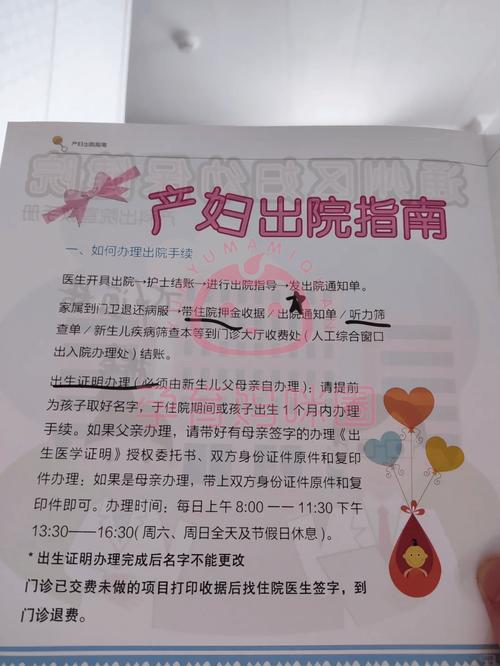 产妇出院指南
通州区妇幼保健院
产妇出院指南
一、如何办理出院手续
医生开具出院→护士结账→进行出院指导→发出院通知单。
家属到门卫退还病服→带住院押金收据/出院通知单/听力筛
查单/新生儿疾病筛查本等到门诊大厅收费处(人工综合窗口
出入院办理处)结账。
出生证明办理(必须由新生儿父母亲自办理):请提前
为孩子取好名字,于住院期间或孩子出生1个月内办理
手续。如果父亲办理,请带好有母亲签字的办理《出
生医学证明》授权委托书、双方身份证件原件和复印
件办理;如果是母亲办理,带上双方身份证件原件和复
印件即可。办理时间:每日上午8:00——11:30下午
13:30——16:30(周六、周日全天及节假日休息)。
*出生证明办理完成后名字不能更改
门诊已交费未做的项目打印收据后找住院医生签字,到
门诊退费。
YUMAMIQUAN
孕育妈咪圈